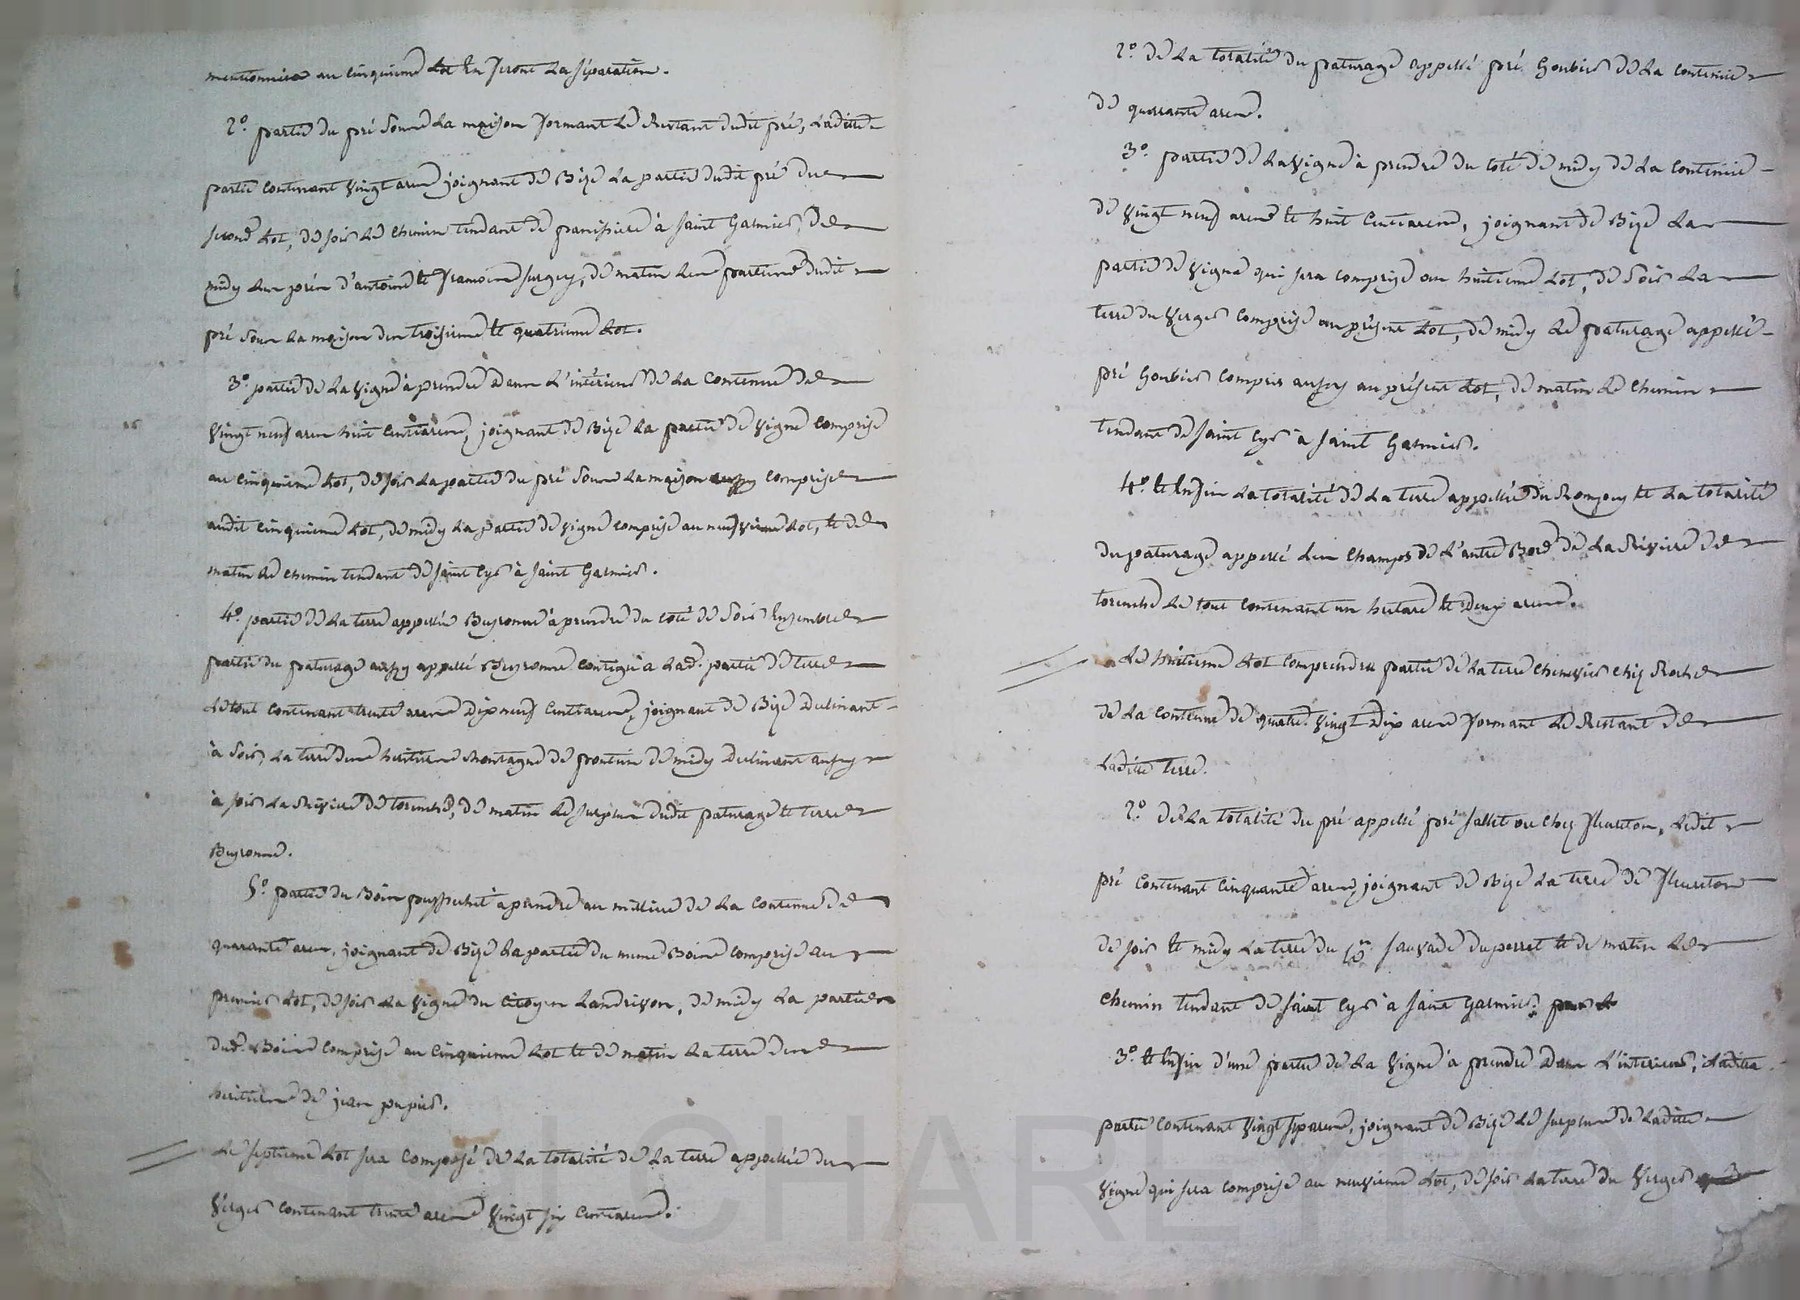 mentionnées au cinquieme lot en feront la séparation.
2º. partie du pré sous la maison formant le restant dudit pré, laditte
partie contenant vingt ares joignant de bize la partie dudit pré du
second lot, de soir le chemin tendant de panissiere à saint Galmier, de
midy les prés d'antoine et francois surgey, de matin les parties dudit
pré sous la maison des troisieme et quatrieme lot.
3º. partie de la vigne à prendre dans l'intérieur de la contenue de
vingt neuf ares huit centiares, joignant de bize la partie de vigne comprise
au cinquieme lot, de soir la partie du pré sous la maison aussy comprise
audit cinquieme lot, de midy la partie de vigne comprise au neufvieme lot, et de
matin le chemin tendant de saint Cyr à saint Galmier.
4º. partie de la terre appellée Beyronne à prendre du coté de soir ensemble
partie du paturage aussy appellé Beyronne contigu à lad. partie de terre
le tout contenant trente ares dix neuf centiares, joignant de bize declinant
à soir, la terre des heritiers montagne de de midy declinant aussy
à soir la riviere de toranche, de matin le surplus dudit paturage et terre
Beyronne.
5º. partie du bois à prendre au millieu de la contenue de
quarante ares, joignant de bize la partie du meme bois comprise au
premier lot, de soir la vigne du citoyen Landrivon, de midy la partie
dud. bois comprise au cinquieme lot et de matin la terre des
heritiers de jean pupier.
Le septieme lot sera composé de la totalité de la terre appellée du
verger contenant trente ares vingt six centiares.
2º. de la totalité du paturage appellé pré Goubier de la contenue
de quarante ares.
3º. partie de la vigne à prendre du coté de midy de la contenue
de vingt neuf ares et huit centiares, joignant de bize la
partie de vigne qui sera comprise au huitieme lot, de soir la
terre du verger comprise au présent lot, de midy le paturage appellé
pré Goubier compris aussy au présent lot, de matin le chemin
tendant de saint Cyr à saint Galmier.
4º. et enfin la totalité de la terre appellée du et la totalité
du paturage appellé les champs de l'autre bord de la riviere de
toranche le tout contenant un hectare et deux ares.
Le huitieme lot comprendra partie de la terre chenevier chez Roche
de la contenue de quatre vingt dix ares formant le restant de
laditte terre.
2º. de la totalité du pré appellé pré sallet ou chez fleureton, ledit
pré contenant cinquante ares, joignant de bize la terre de fleureton
de soir et midy la terre du cen sauvade duperret et de matin le
chemin tendant de saint Cyr à saint Galmier.
3º. et enfin d'une partie de la vigne à prendre dans l'interieur, laditte
partie contenant vingt sept ares, joignant de bize le surplus de laditte
vigne qui sera comprise au neuvieme lot, de soir la terre du verger